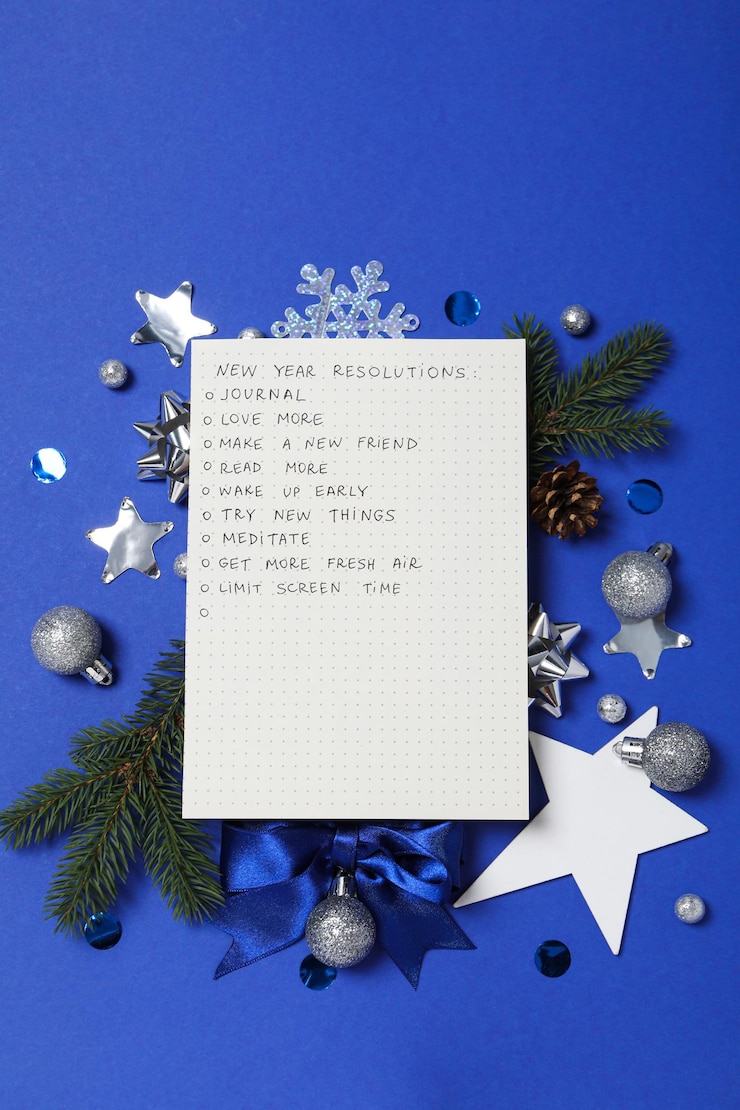 NEW YEAR RESOLUTIONS:
○ JOURNAL
○ LOVE MORE
○ MAKE A NEW FRIEND
○ READ MORE
○ WAKE UP EARLY
○ TRY NEW THINGS
○ MEDITATE
○ GET MORE FRESH AIR
○ LIMIT SCREEN TIME
○